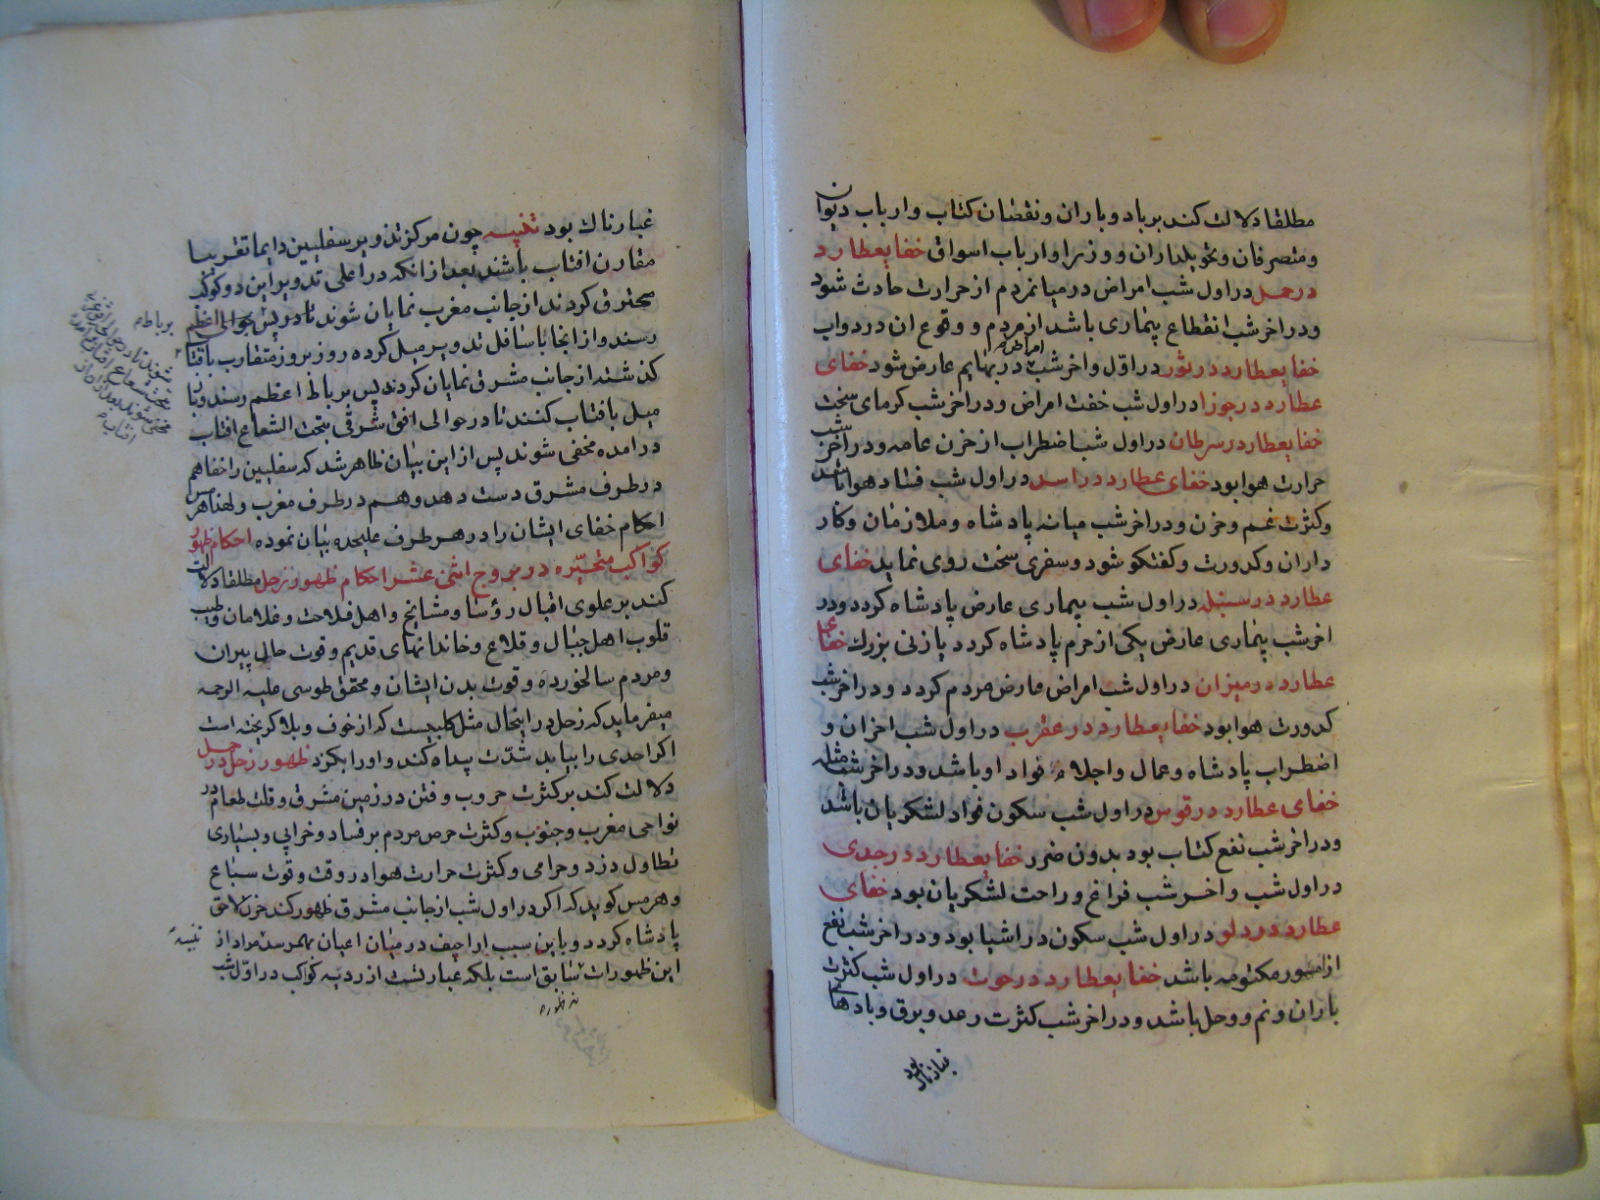 مطلقا دلالت کند بر باد و باران و نقصان کتاب و ارباب دیوان
و متصرفان و تحویلداران و وزرا و ارباب اسواق خفای عطارد
در حمل در اول شب امراض در میان مردم از حرارت حادث شود
و در اخر شب انقطاع بیماری باشد از مردم و وقوع ان در دواب
خفای عطارد در ثور در اول و اخر شب امراض در بهایم عارض شود خفای
عطارد در جوزا در اول شب خفت امراض و در اخر شب کرمای سخت
خفای عطارد در سرطان در اول شب اضطراب از حزن عامه و در اخر شب
حرارت هوا بود خفای عطارد در اسد در اول شب فساد هوا باشد
و کثرت غم و حزن و در اخر شب میانه پادشاه و ملازمان و کار
داران و کدورت و کفتکو شود و سفری سخت روی نماید خفای
عطارد در سنبله در اول شب بیماری عارض پادشاه کردد و در
اخر شب بیماری عارض یکی از حرم پادشاه کردد یا زنی بزرك خفای
عطارد در میزان در اول شب امراض عارض مردم کردد و در اخر شب
کدورت هوا بود خفای عطارد در عقرب در اول شب احزان و
اضطراب پادشاه و عمال و اجلاء قواد او باشد و در اخر شب مثله
خفای عطارد در قوس در اول شب سکون قواد لشکریان باشد
و در اخر شب نفع کتاب بود بدون ضرر خفای عطارد در جدی
در اول شب و اخر شب فراغ و راحت لشکریان بود خفای
عطارد در دلو در اول شب سکون در اشیا بود و در اخر شب نفع
از امور مکتومه باشد خفای عطارد در حوت در اول شب کثرت
باران و نم و وحل باشد و در اخر شب کثرت رعد و برق و بادهای
غبارناك بود
غبارناك بود تنبیه چون مرکز تدویر سفلیین دایما تقریبا
مقارن افتاب باشند بعد از انکه در اعلی تدویر این دو کوکب
محترق کردند از جانب مغرب نمایان شوند تا در پس حوالی اعظم
رسند و از انجا باسافل تدویر میل کرده روز بروز متقارب بافتاب
کذشته از جانب مشرق نمایان کردند پس بر باط اعظم رسند و باز
میل بافتاب کنند تا در حوالی افق شرقی بتحت الشعاع افتاب
در امده مخفی شوند پس از این بیان ظاهر شد که سفلیین را خفا هم
در طرف مشرق دست دهد و هم در طرف مغرب و لهذا هرمس
احکام خفای ایشان را در هر طرف علیحده بیان نموده احکام ظهور
کواکب متحیره در بروج اثنی عشر احکام ظهور زحل مطلقا دلالت
کند بر علوی اقبال رؤسا و مشایخ و اهل فلاحت و غلامان و طیب
قلوب اهل جبال و قلاع و خاندانهای قدیم و قوت حال پیران
و مردم سالخورده و قوت بدن ایشان و محقق طوسی علیه الرحمه
میفرماید که زحل در اینحال مثل کلبیست که از خوف و بلا کریخته است
اکر احدی را بیابد بشدت پناه کند و او را بکزد ظهور زحل در حمل
دلالت کند بر کثرت حروب و فتن در زمین مشرق و قلت طعام در
نواحی مغرب و جنوب و کثرت حرص مردم بر فساد و خرابی و بسیاری
تطاول دزد و حرامی و کثرت حرارت هوا در وقت و قوت سباع
و هرمس کوید که اکر در اول شب از جانب مشرق ظهور کند حزن لاحق
پادشاه کردد و باین سبب اراجیف در میان اعیان بهمرسد مراد از
این ظهورات سابق است بلکه عبارتست از ردیه کواکب در اول شب
تنبیه
نه ظهوره